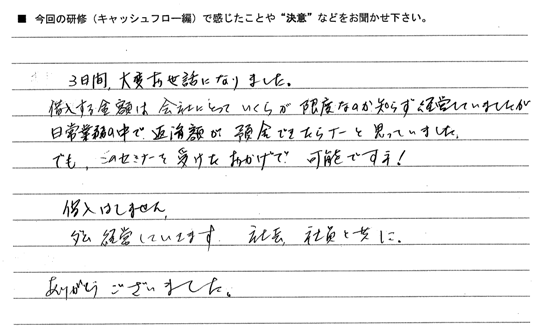 ■ 今回の研修（キャッシュフロー編）で感じたことや“決意”などをお聞かせ下さい。
3日間、大変お世話になりました。
借入する金額は会社にとっていくらが限度なのか知らず経営していましたが
日常業務の中で返済額が預金できたらナーと思っていました。
でも、このセミナーを受けたおかげで可能です!
借入はしません。
ダム経営していきます。社長、社員と共に。
ありがとうございました。